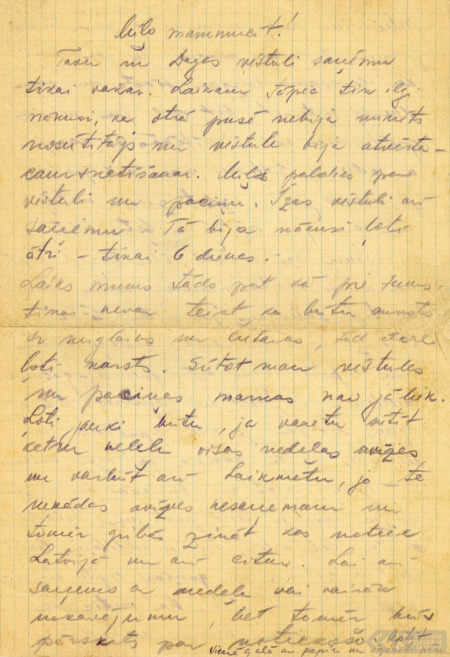 Mīlo mammucīt!
Tavu un Dagas vēstuli saņēmu
tikai vakar. Laikam tāpēc tik ilgi
nākusi, ka otrā pusē nebija minēts
nosūtītājs un vēstule bija atvērta
caurskatīšanai. Mīļš paldies par
vēstuli un paciņu. Ilgas vēstuli arī
saņēmu. Tā bija nākusi ļoti
ātri - tikai 6 dienas. -
Laiks mums tāds pat kā pie Jums.
tikai nevar teikt ka būtu auksts
ir miglains un lietains, tad atkal
ļoti karsts. Sūtot man vēstules
un paciņas markas nav jāliek.
Ļoti jauki būtu, ja varētu sūtīt
katru nedēļu visas nedēļas avīzes
un varbūt arī Laikmetu, jo te
nekādas avīzes nesaņemam un
tomēr gribas zināt kas notiek
Latvijā un arī citur. Lai arī
saņems ar nedēļu vai vairāk
nokavējumu, bet tomēr būs
pārskats par notiekošo.
Vienā galā arī papīri un